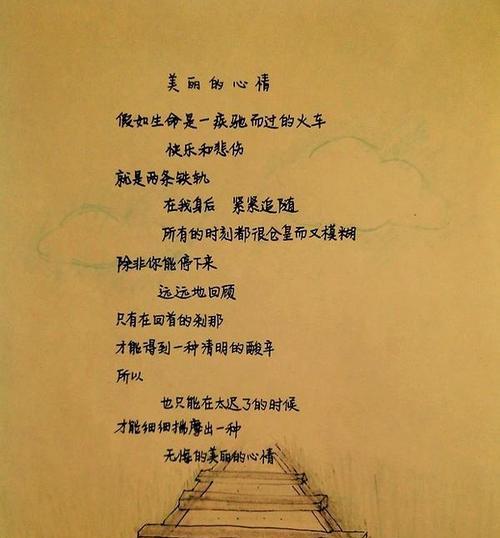 美丽的心情
假如生命是一疾驰而过的火车
快乐和悲伤
就是两条铁轨
在我身后 紧紧追随
所有的时刻都很仓皇而又模糊
除非你能停下来
远远地回顾
只有在回首的刹那
才能得到一种清明的酸辛
所以
也只能在太迟了的时候
才能细细揣摩出一种
无悔的美丽的心情